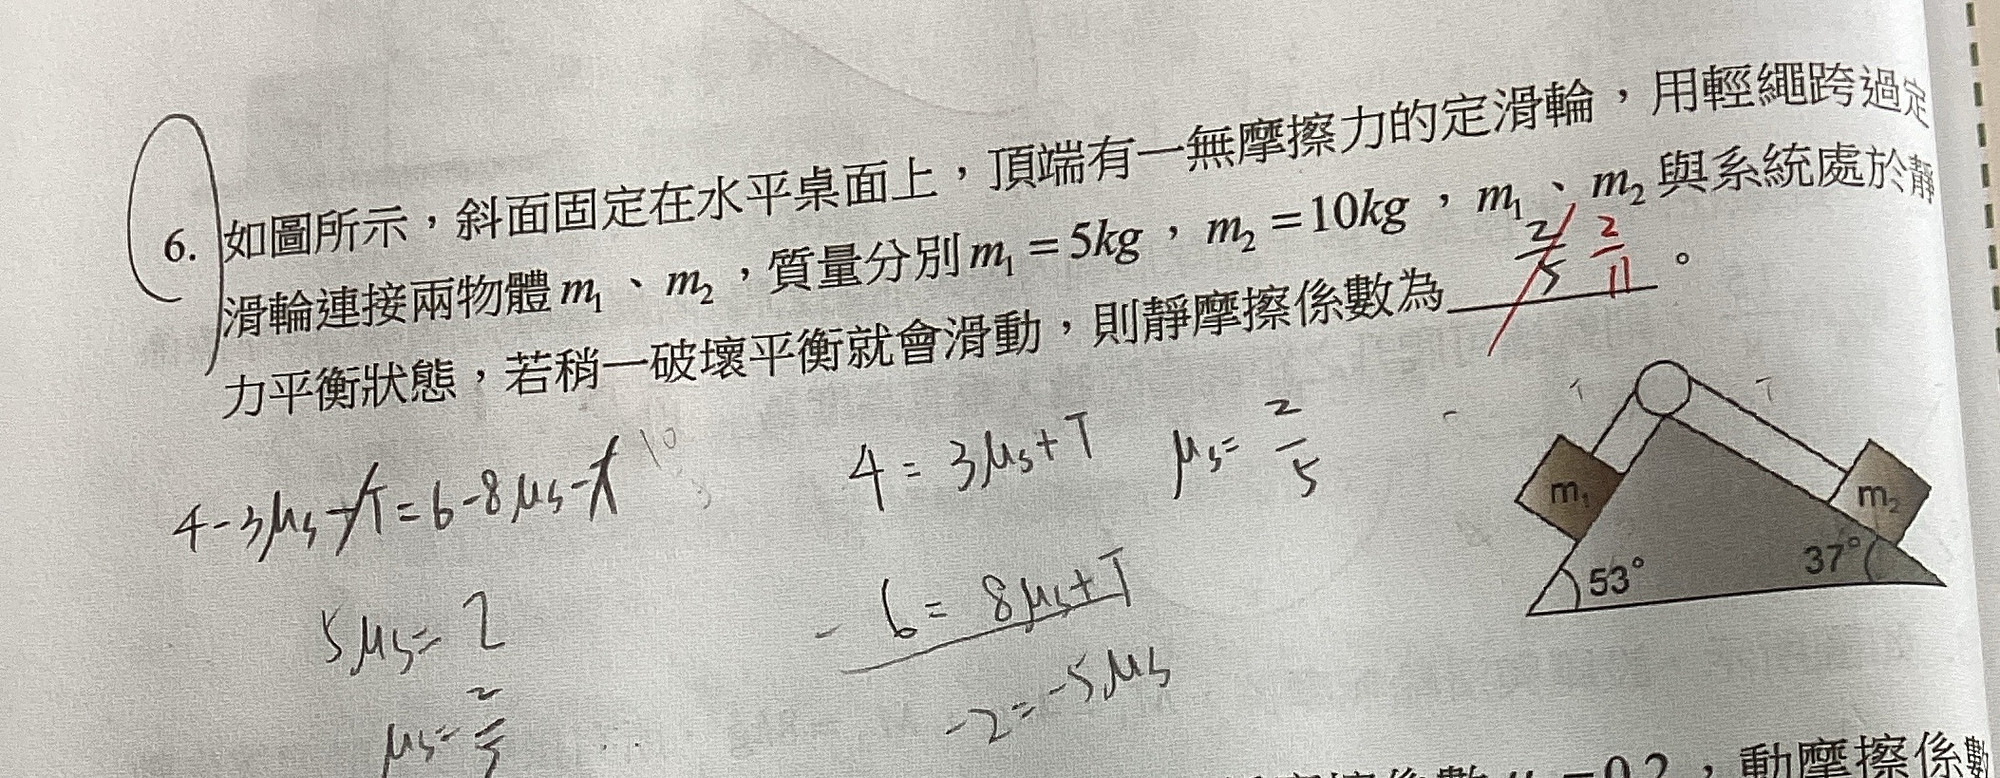 6. 如圖所示，斜面固定在水平桌面上，頂端有一無摩擦力的定滑輪，用輕繩跨過定
滑輪連接兩物體 m₁、m₂，質量分別 m₁ = 5kg，m₂ = 10kg，m₁、m₂ 與系統處於靜
力平衡狀態，若稍一破壞平衡就會滑動，則靜摩擦係數為 2/5 2/11 。
4-3μs-T=6-8μs-T
10
5μs=2
μs=2/5
4=3μs+T
μs=2/5
- 6=8μs+T
-2=-5μs
T
T
m₁
m₂
53°
37°
=0.2，動摩擦係數